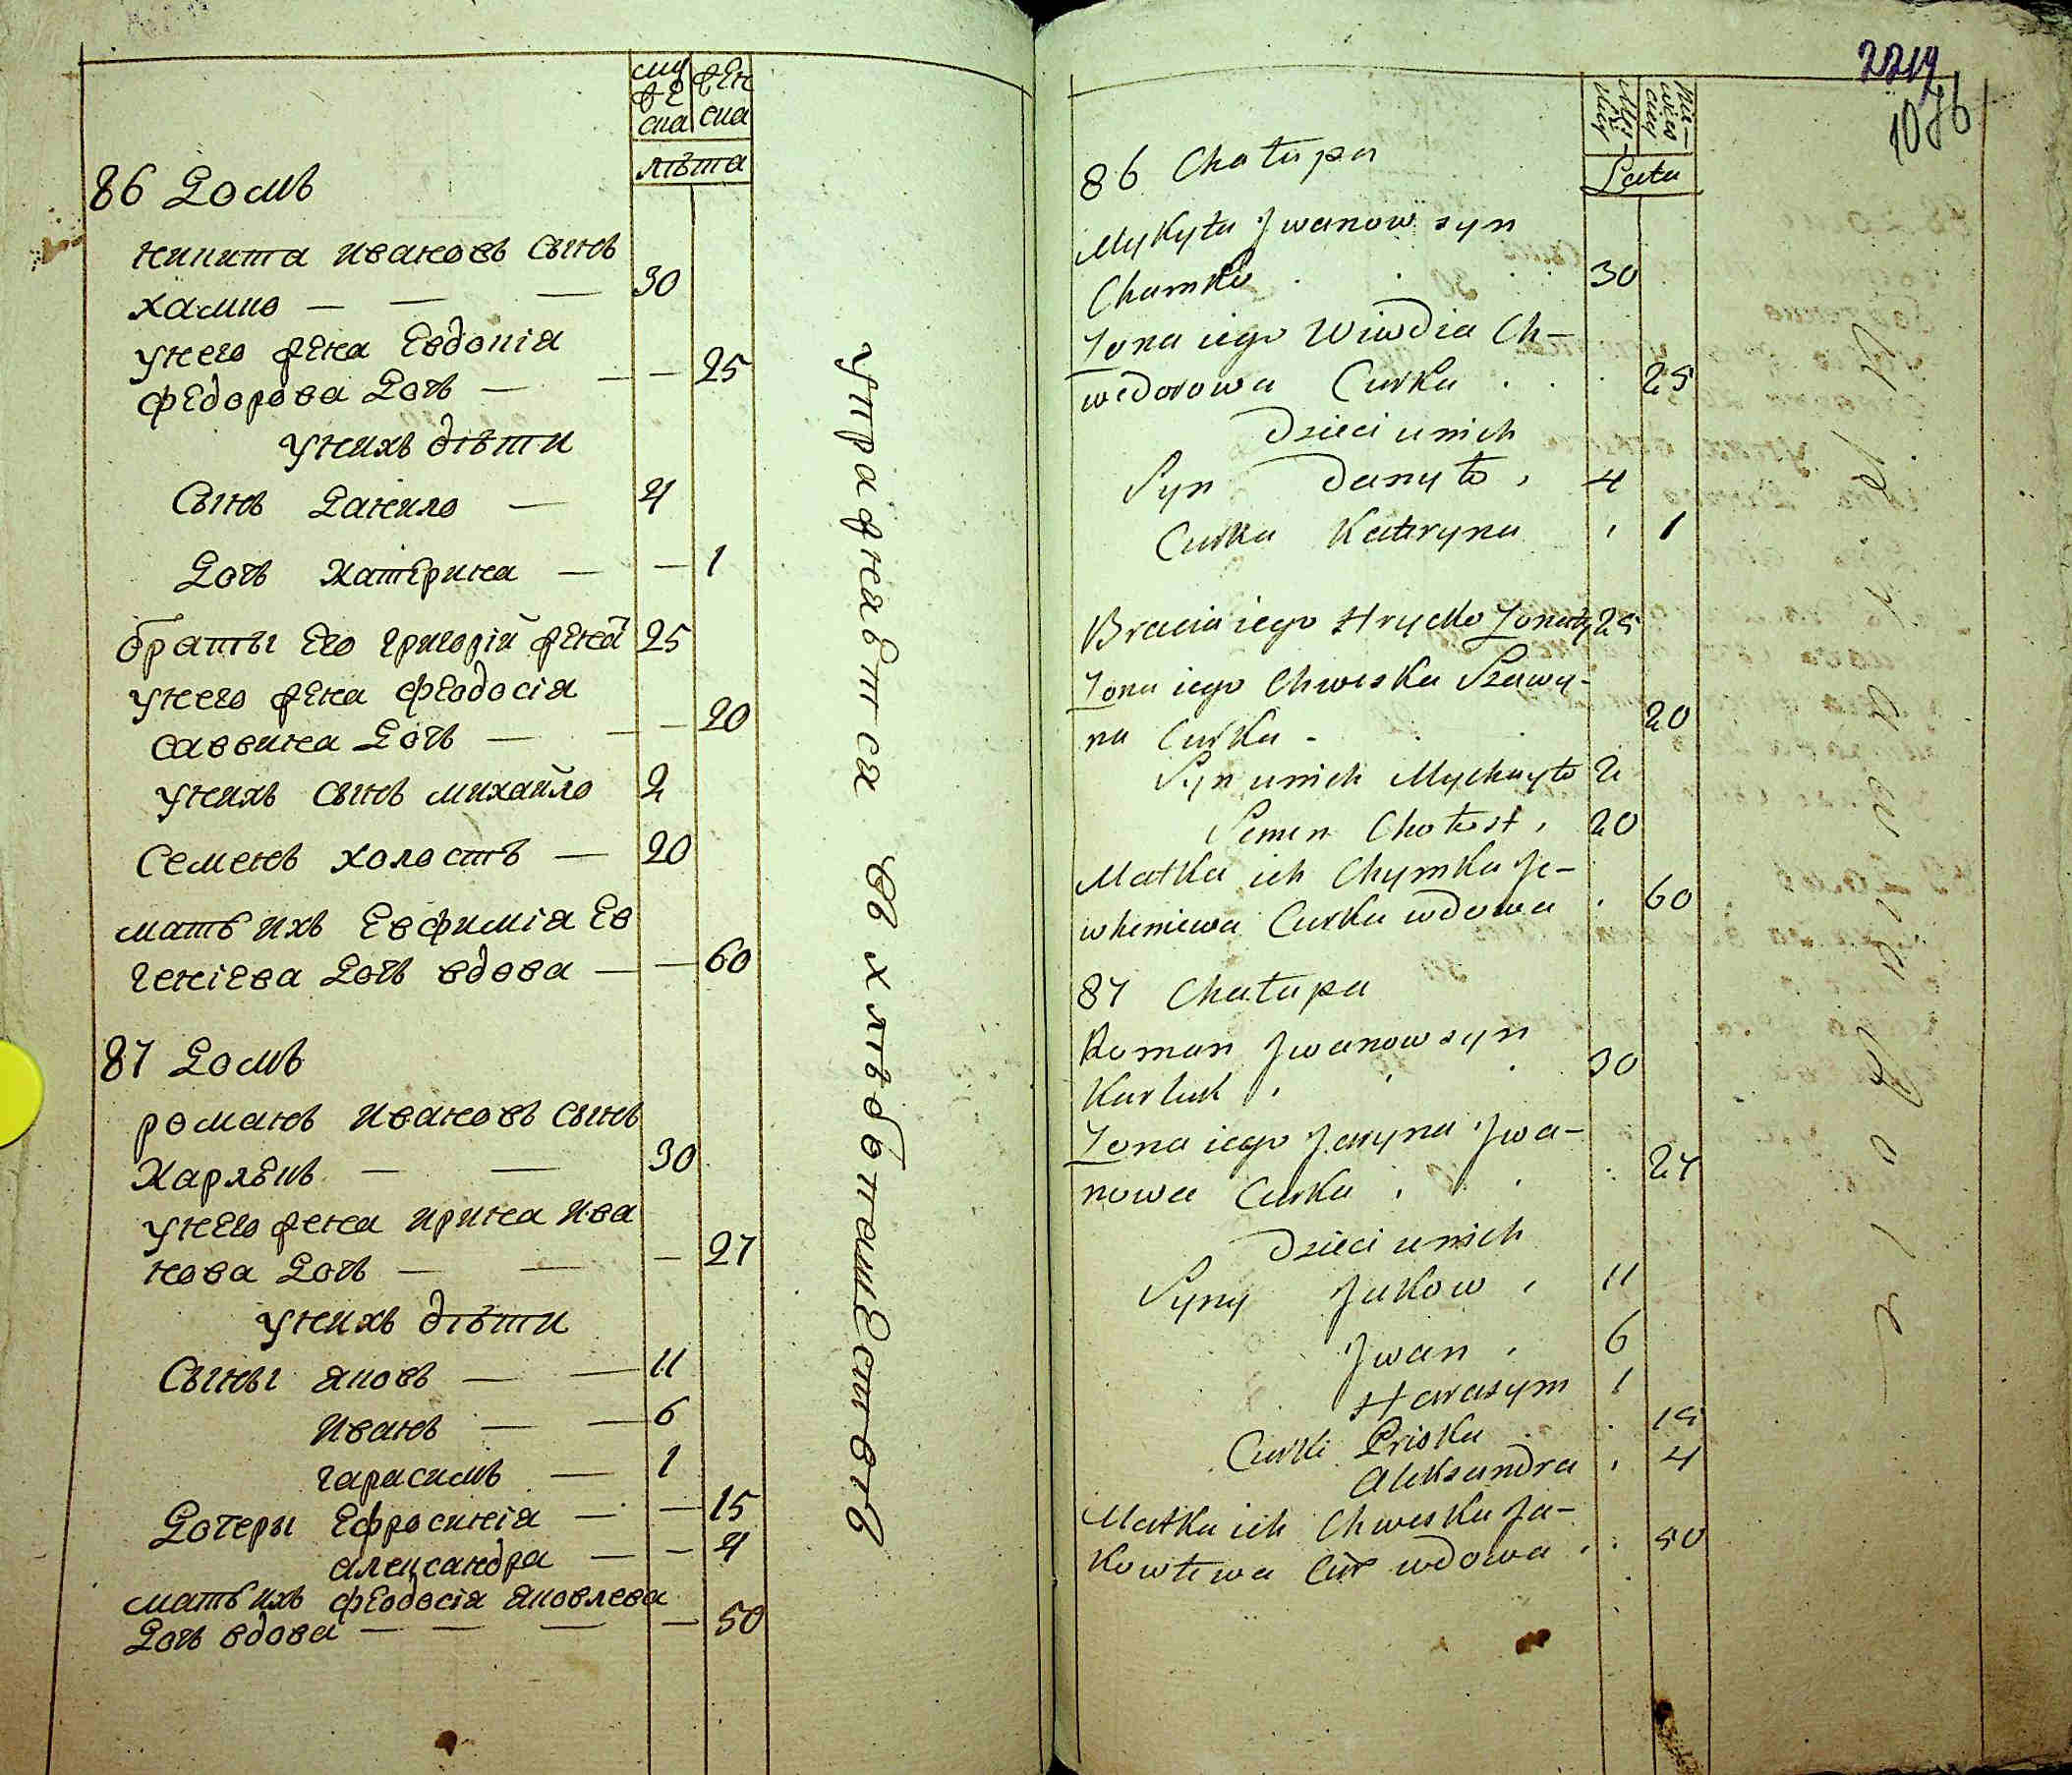 муже
ска
жен
ска
лѣта
86 Домъ
никита ивановъ сынъ
хамко — — — 30
унего жена Евдокія
федорова Дочь — — — 25
унихъ дѣти
Сынъ Данило — 4
Дочь Катерина — — 1
браты Его григорій женатъ 25
унего жена феодосія
саввина Дочь — — — 20
унихъ сынъ михайло 2
Семенъ холостъ — 20
мать ихъ Евфимія Ев
геніева Дочь вдова — — 60
87 Домъ
романъ ивановъ сынъ
Карлюкъ — — 30
унего жена ирина ива
нова Дочь — — — 27
унихъ дѣти
Сыны яковъ — — 11
иванъ — — 6
гарасимъ — 1
Дочеры Ефросинія — — 15
александра — — 4
мать ихъ феодосія яковлева
Дочь вдова — — — — 50
упражнается въ хлѣбопашествѣ
2219
1076
Mez-
ki
Nie-
wies
ciey
Lata
86 Chałupa
Mykyta Jwanow syn
Chamko 30
Zona iego Wiwdia Ch-
wedorowa Curka 25
Dzieci unich
Syn Danyło 4
Curka Kateryna 1
Bracia iego Hrycko Zonaty 25
Zona iego Chweska Szawy-
na Curka 20
Syn unich Mychayło 2
Semen Chołost 20
Matka ich Chymka Je-
wheniewa Curka wdowa 60
87 Chałupa
Roman Jwanow syn
Karluk 30
Zona iego Jaryna Jwa-
nowa Curka 27
Dzieci unich
Syny Jakow 11
Jwan 6
Harasym 1
Curki Priska 15
Aleksandra 4
Matka ich Chweska Ja-
kowlewa Cur wdowa 50